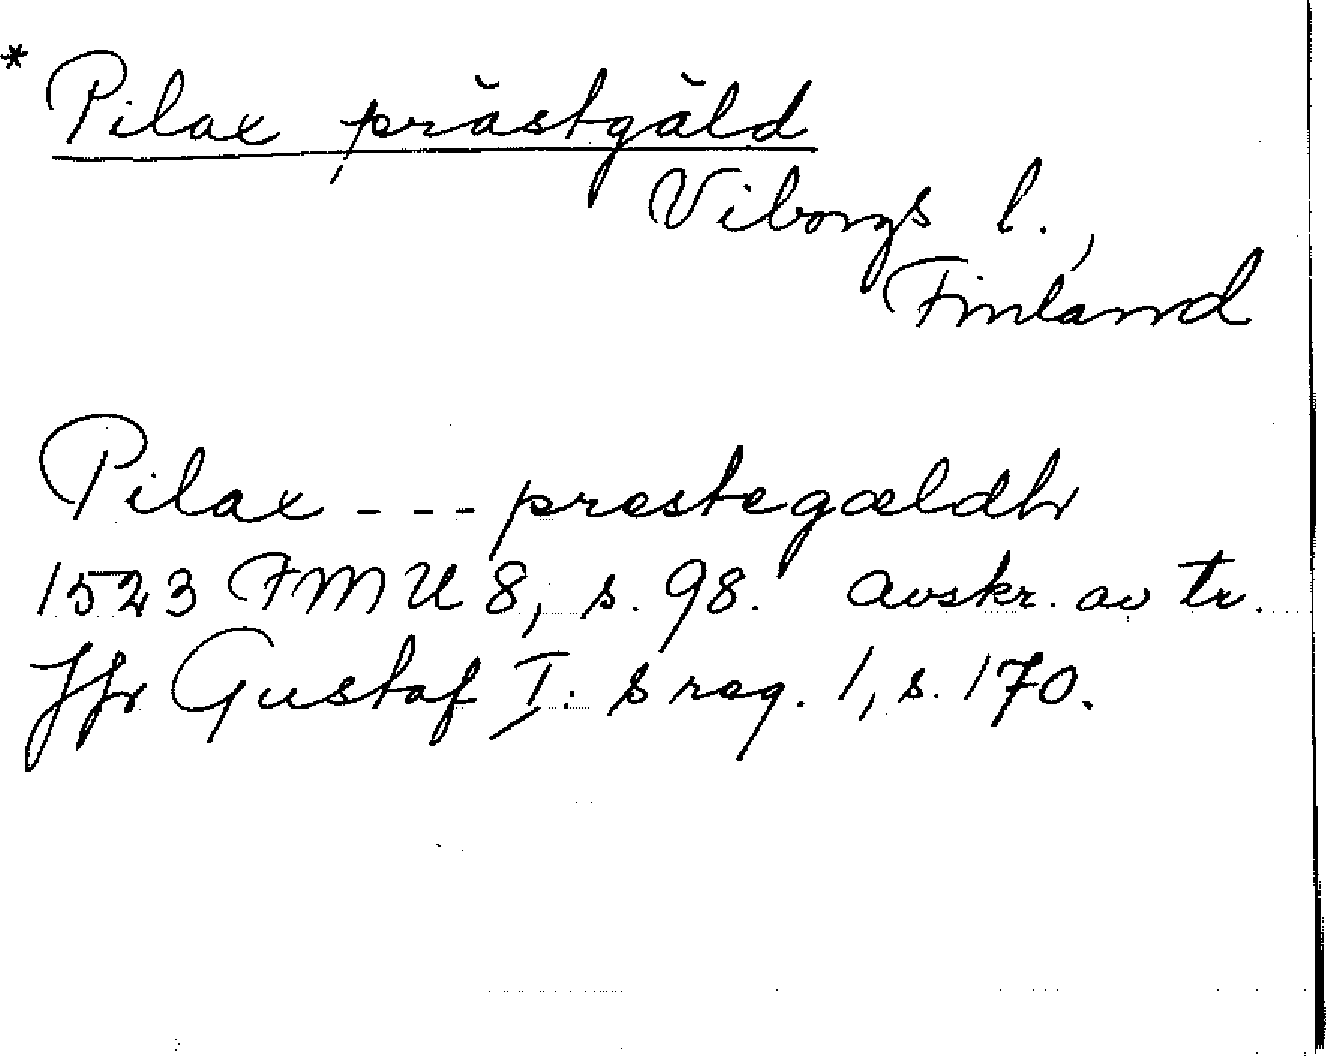 * Pilax prästgäld
Viborgs l.,
Finland
Pilax --- prestegældh
1523 FMU 8, s. 98. Avskr. av tr.
Jfr Gustaf I:s reg. 1, s. 170.